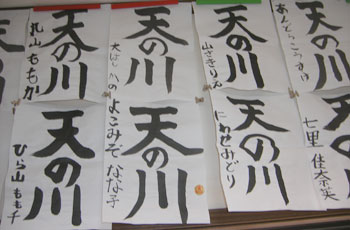 天の川
丸山ももか
天の川
大はし
天の川
山ざきりえ
天の川
あんどうこうすけ
天の川
ひら山もも千
天の川
よこみぞなな子
天の川
にわせみどり
七里佳奈笑